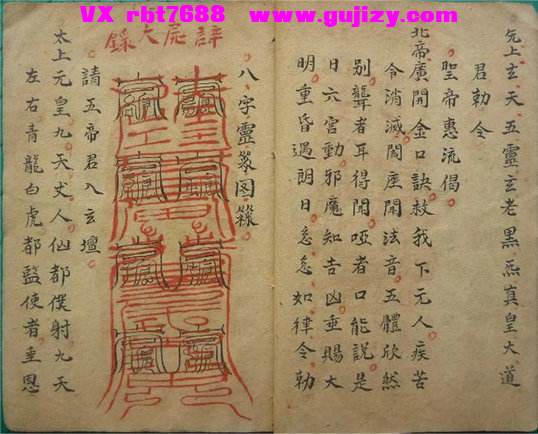 VX rbt7688 www.gujizy.com
先上玄天五靈玄老黑炁真皇大道
君勅令
聖帝惠流偈
北帝廣開金口訣救我下元人疾苦
令消滅聞座開法音五體欣然
別聾者耳得聞啞者口能說是
日六宮動邪魔知吉凶垂賜大
明重昏遇朗日急急如律令勅
大錄
八字靈篆图籙
請五帝君入玄壇
太上元皇九天丈人仙都僕射九天
左右青龍白虎都監使者垂恩